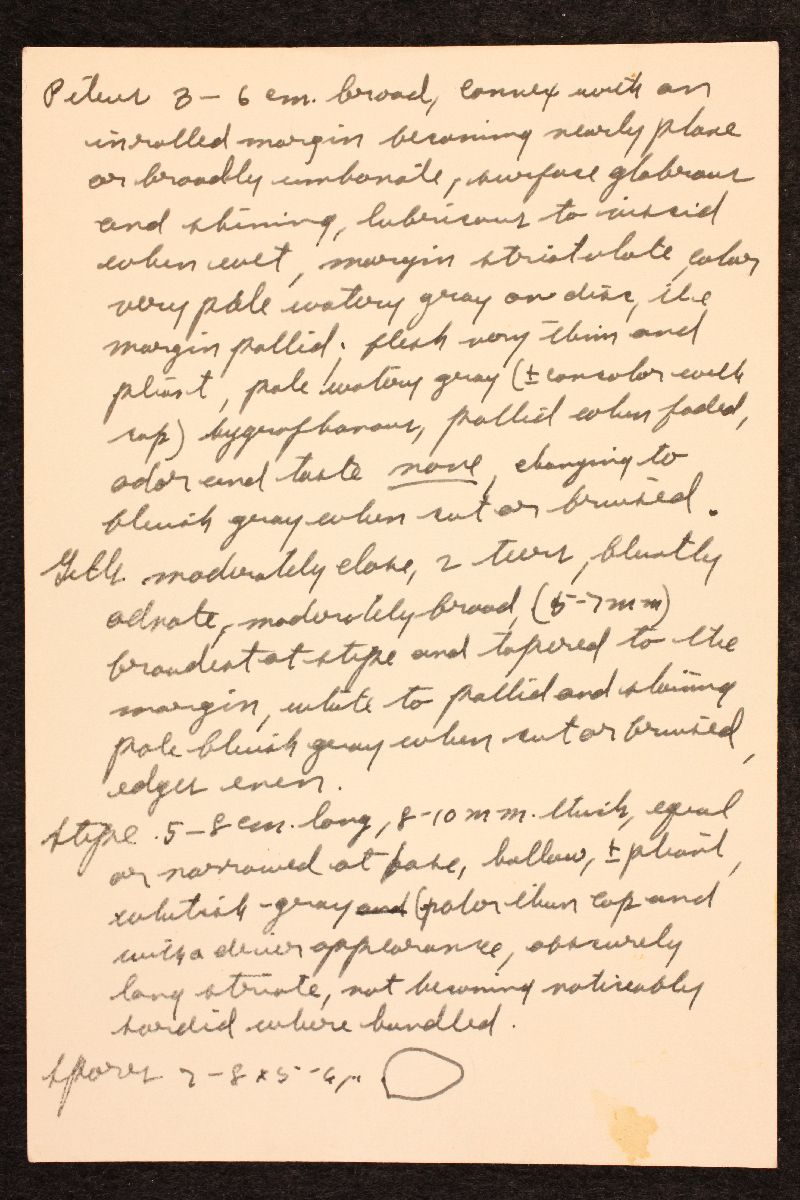 Pileus 3 – 6 cm. broad, convex with an
inrolled margin becoming nearly plane
or broadly umbonate, surface glabrous
and shining, lubricous to viscid
when wet, margin striatulate, color
very pale watery gray on disc, the
margin pallid; flesh very thin and
pliant, pale watery gray (± concolor with
cap) hygrophanous, pallid when faded,
odor and taste none, changing to
bluish gray when cut or bruised.
Gills moderately close, 2 tiers, bluntly
adnate, moderately broad, (5-7 mm)
broadest at stipe and tapered to the
margin, white to pallid and staining
pale bluish gray when cut or bruised,
edges even.
Stipe 5 – 8 cm. long, 8-10 mm. thick, equal
or narrowed at base, hollow, ± pliant,
whitish-gray and (paler than cap and
with a drier appearance, obscurely
long striate, not becoming noticeably
sordid where handled.
Spores 7 – 8 x 5 - 6 µ.